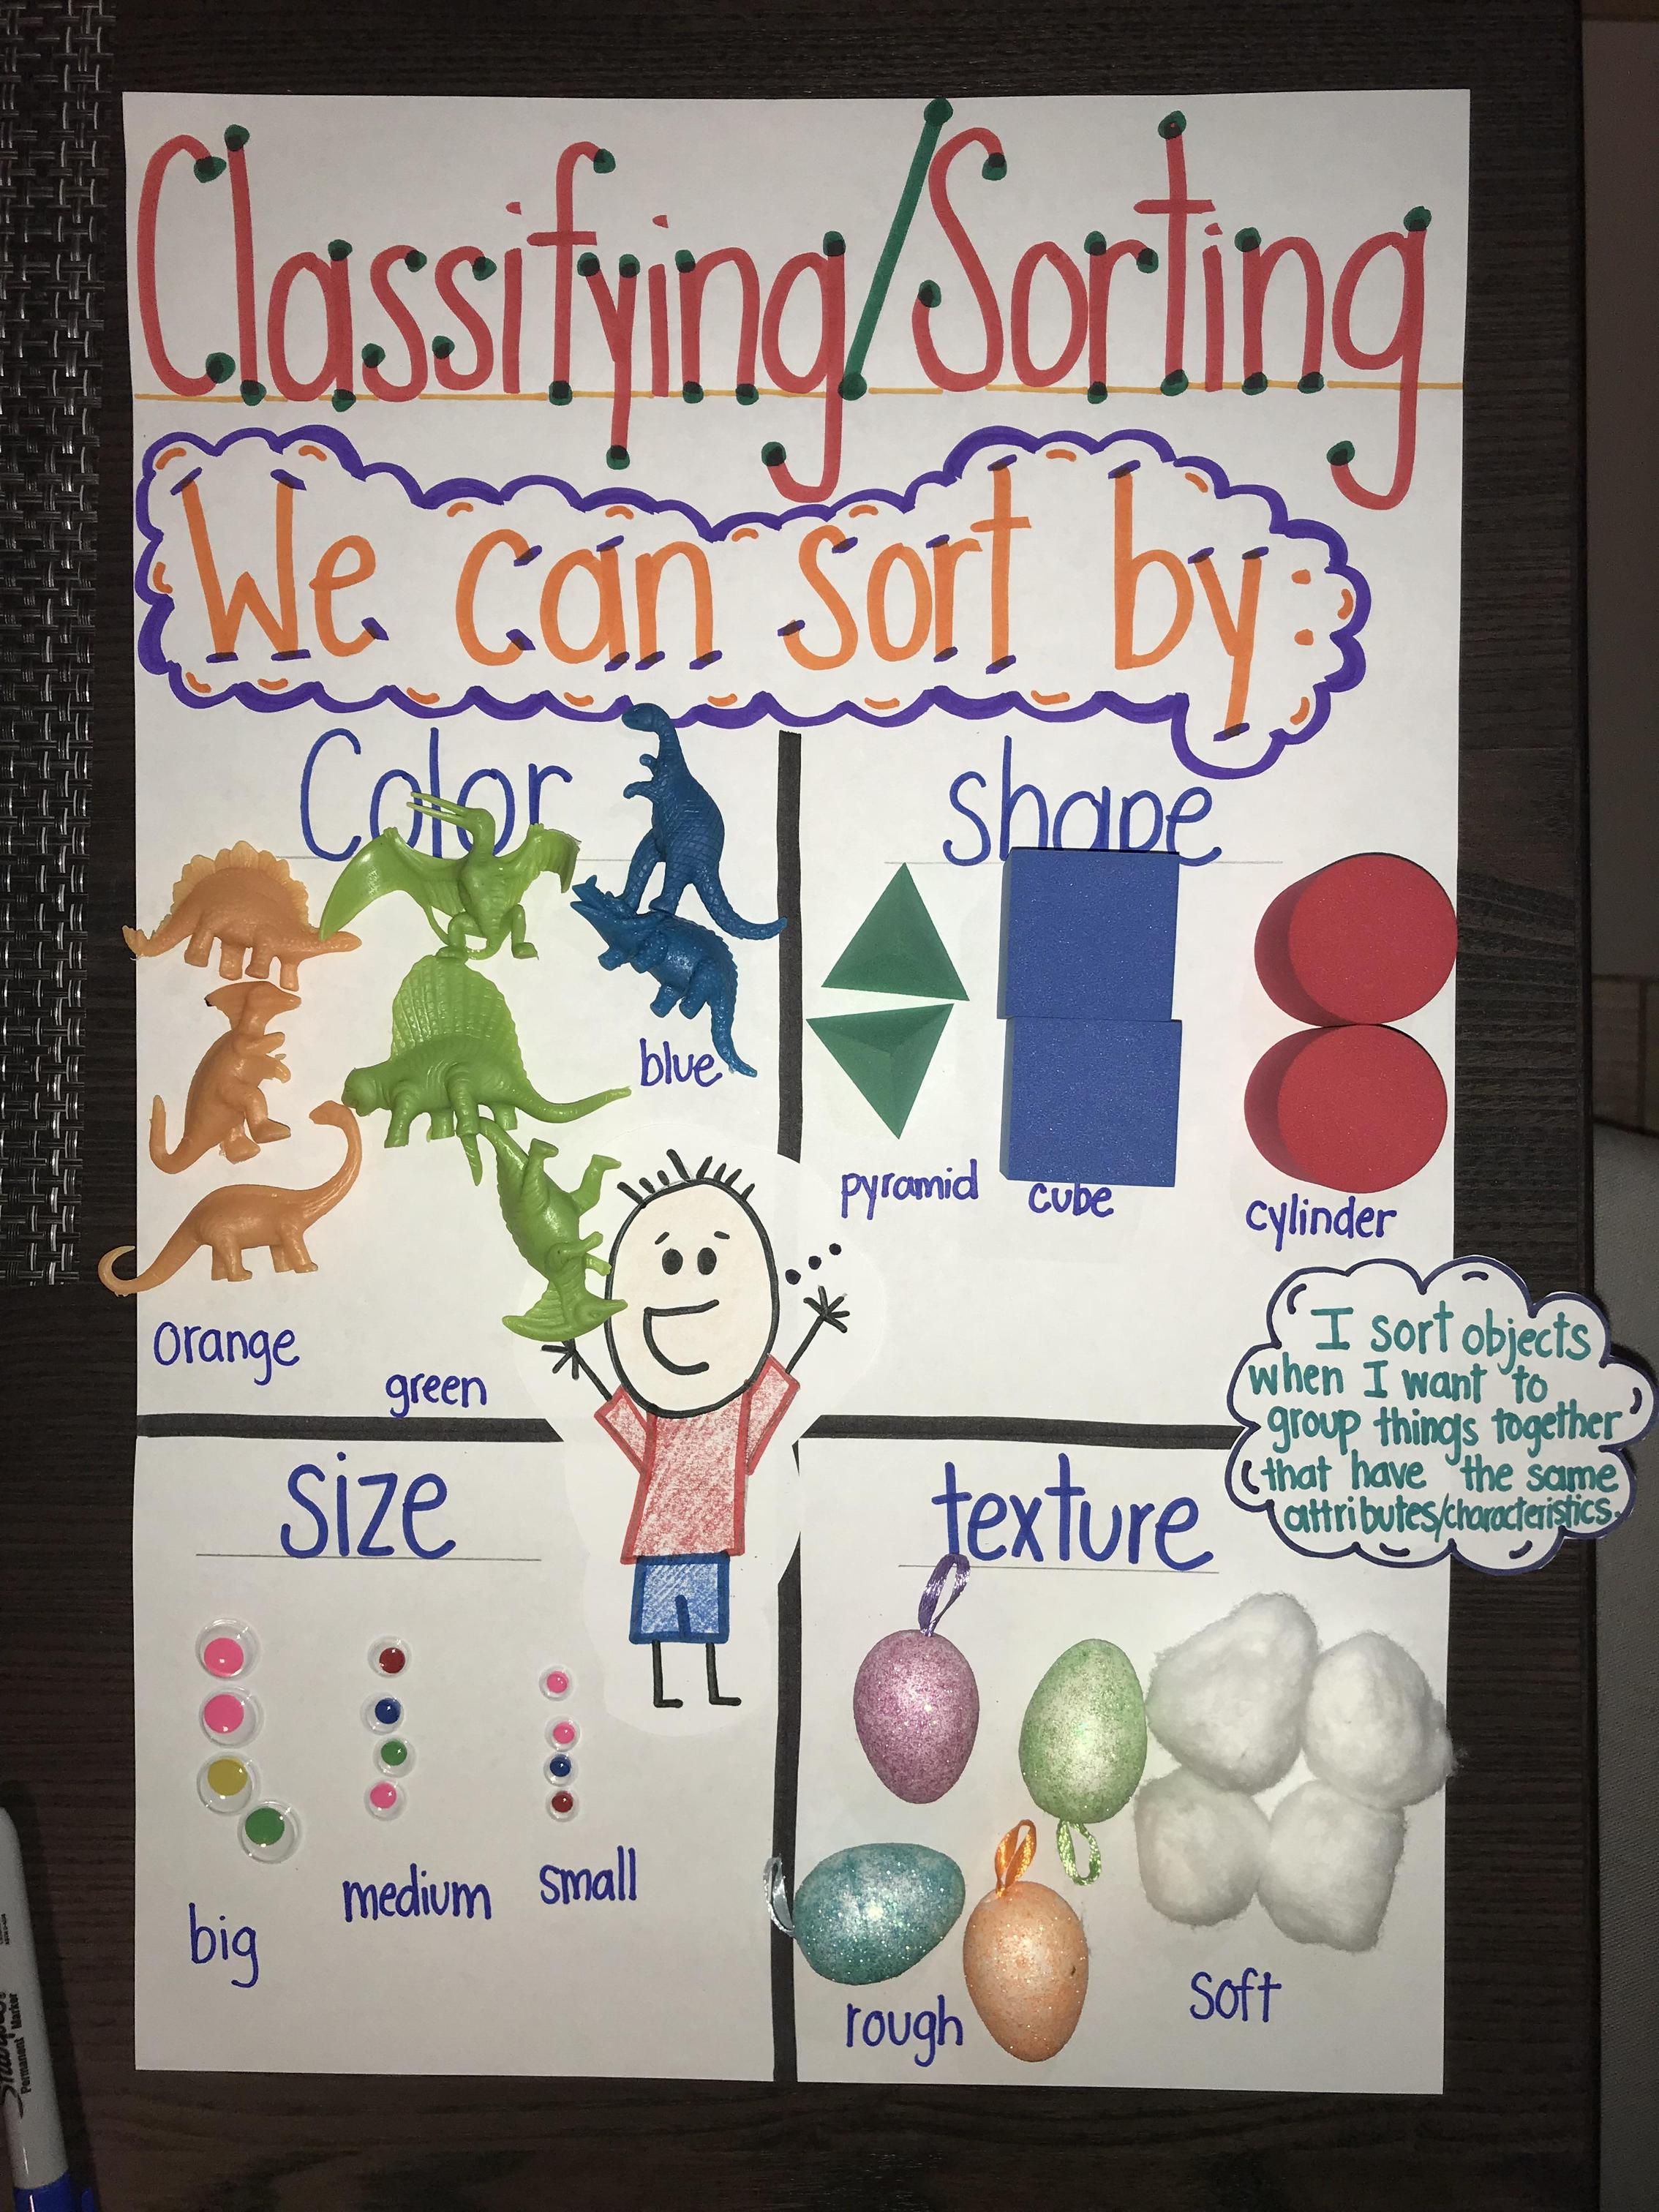 Classifying/Sorting
We can sort by:
Color
shape
blue
pyramid
cube
cylinder
orange
green
I sort objects
when I want to
group things together
that have the same
attributes/characteristics.
size
texture
big
medium
small
rough
soft
Sharpie
Permanent Marker